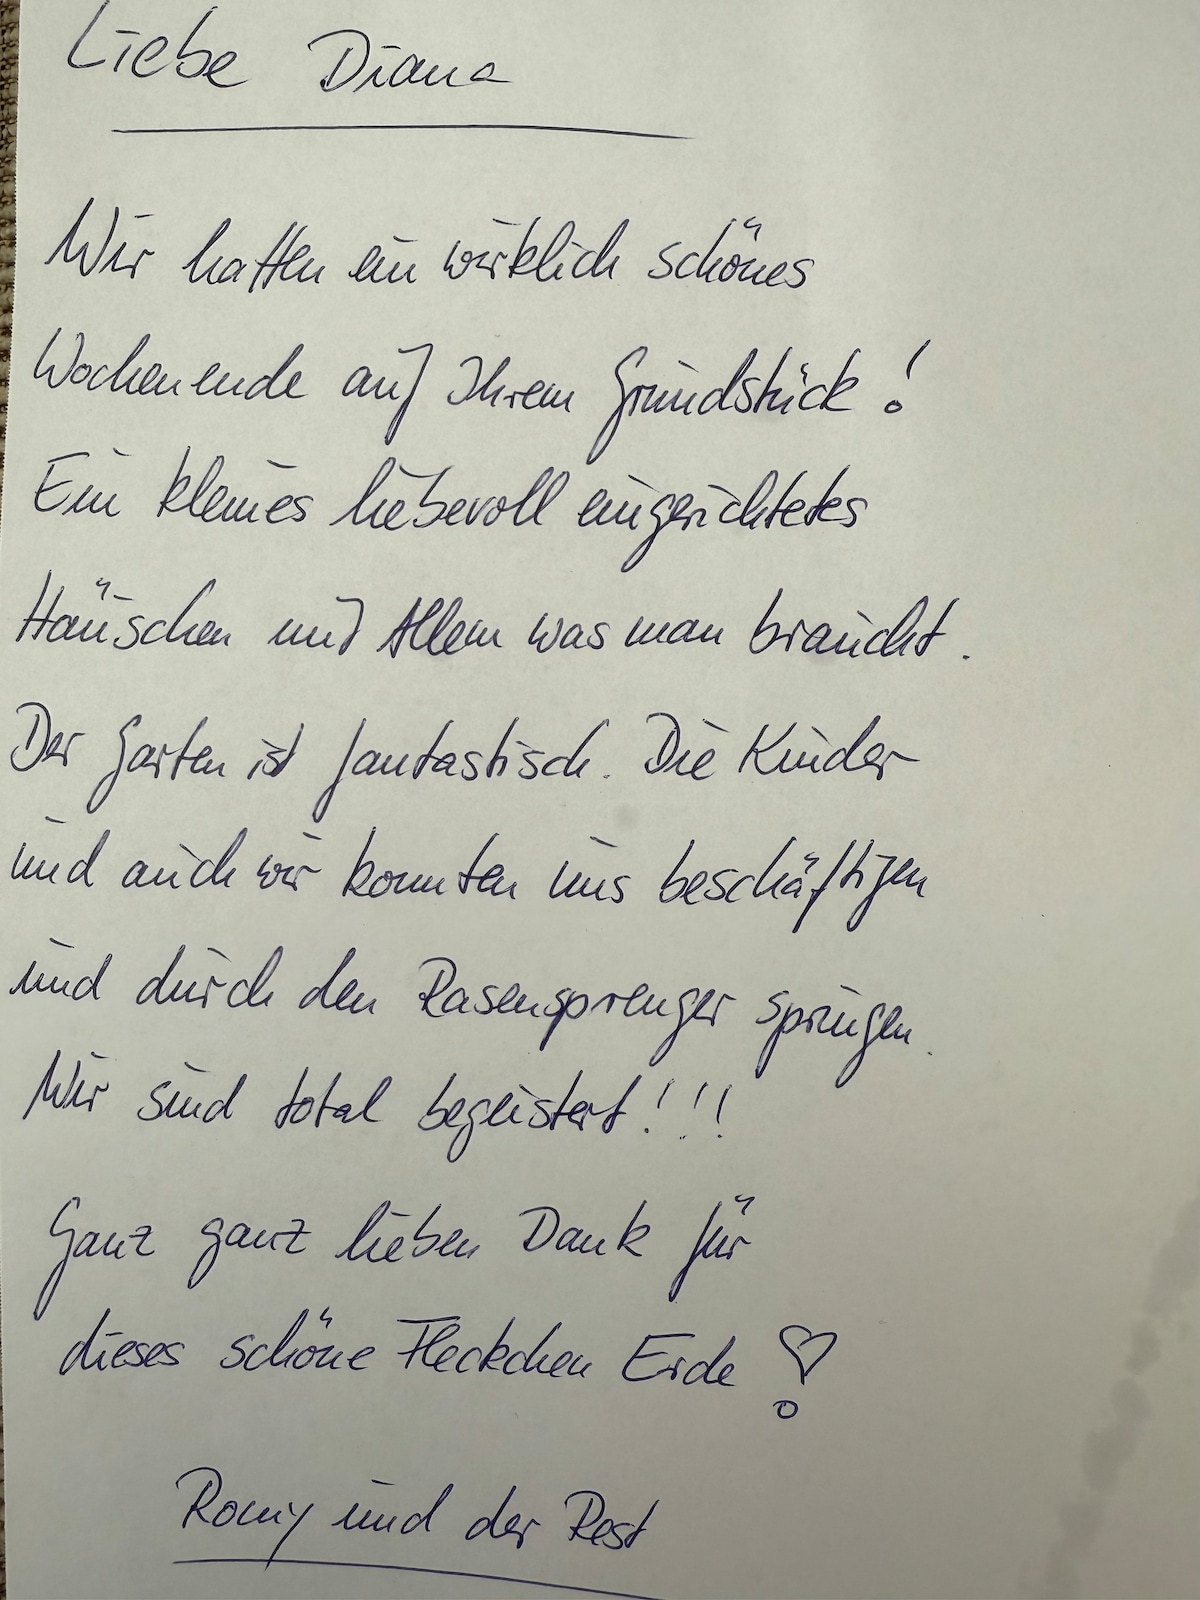 Liebe Diana
Wir hatten ein wirklich schönes
Wochenende auf Ihrem Grundstück!
Ein kleines liebevoll eingerichtetes
Häuschen und Allem was man braucht.
Der Garten ist fantastisch. Die Kinder
und auch wir konnten uns beschäftigen
und durch den Rasensprenger springen.
Wir sind total begeistert!!!
Ganz ganz lieben Dank für
dieses schöne Fleckchen Erde
Romy und der Rest